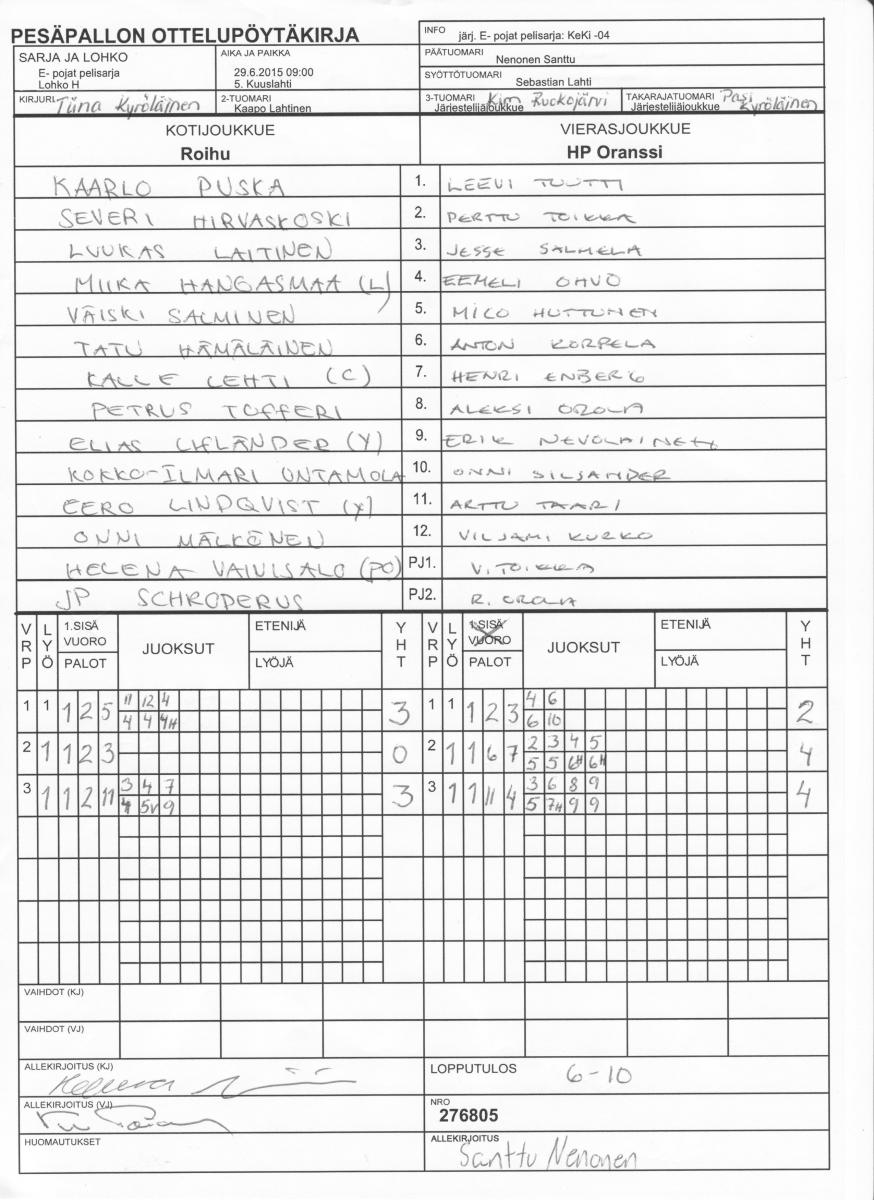 PESÄPALLON OTTELUPÖYTÄKIRJA
INFO järj. E- pojat pelisarja: KeKi -04
SARJA JA LOHKO
E- pojat pelisarja
Lohko H
AIKA JA PAIKKA
29.6.2015 09:00
5. Kuuslahti
PÄÄTUOMARI
Nenonen Santtu
SYÖTTÖTUOMARI
Sebastian Lahti
KIRJURI Tiina Kyröläinen
2-TUOMARI
Kaapo Lahtinen
3-TUOMARI Kim Ruokojärvi
Järjestelijäjoukkue
TAKARAJATUOMARI Pasi Kyröläinen
Järjestelijäjoukkue
KOTIJOUKKUE VIERASJOUKKUE
Roihu HP Oranssi
KAARLO PUSKA 1. LEEVI TUUTTI
SEVERI HIRVASKOSKI 2. PERTTU TOIKKA
LUUKAS LAITINEN 3. JESSE SALMELA
MIIKA HANGASMAA (L) 4. EEMELI OHVO
VÄISKI SALMINEN 5. MICO HUTTUNEN
TATU HÄMÄLÄINEN 6. ANTON KORPELA
KALLE LEHTI (C) 7. HENRI ENBERG
PETRUS TOFFERI 8. ALEKSI OROLA
ELIAS LIFLÄNDER (Y) 9. ERIK NEVOLAINEN
KOKKO-ILMARI UNTAMOLA 10. ONNI SILJANDER
EERO LINDQVIST (Y) 11. ARTTU TAARI
ONNI MÄLKÖNEN 12. VILJAMI KURKO
HELENA (PO) PJ1. V. TOIKKA
JP SCHRODERUS PJ2. R. OROLA
VRP LYÖ 1.SISÄ VUORO PALOT JUOKSUT ETENIJÄ LYÖJÄ YHT VRP LYÖ 1.SISÄ VUORO PALOT JUOKSUT ETENIJÄ LYÖJÄ YHT
1 1 1 2 5 11 12 4 3 1 1 1 2 3 4 6 2
4 4 4H 6 10
2 1 1 2 3 0 2 1 1 6 7 2 3 4 5 4
5 5 6H 6H
3 1 1 2 11 3 4 7 3 3 1 1 11 4 3 6 8 9 4
4 5V 9 5 7H 9 9
VAIHDOT (KJ)
VAIHDOT (VJ)
ALLEKIRJOITUS (KJ) Helena
LOPPUTULOS 6-10
ALLEKIRJOITUS (VJ)
NRO
276805
HUOMAUTUKSET
ALLEKIRJOITUS
Santtu Nenonen